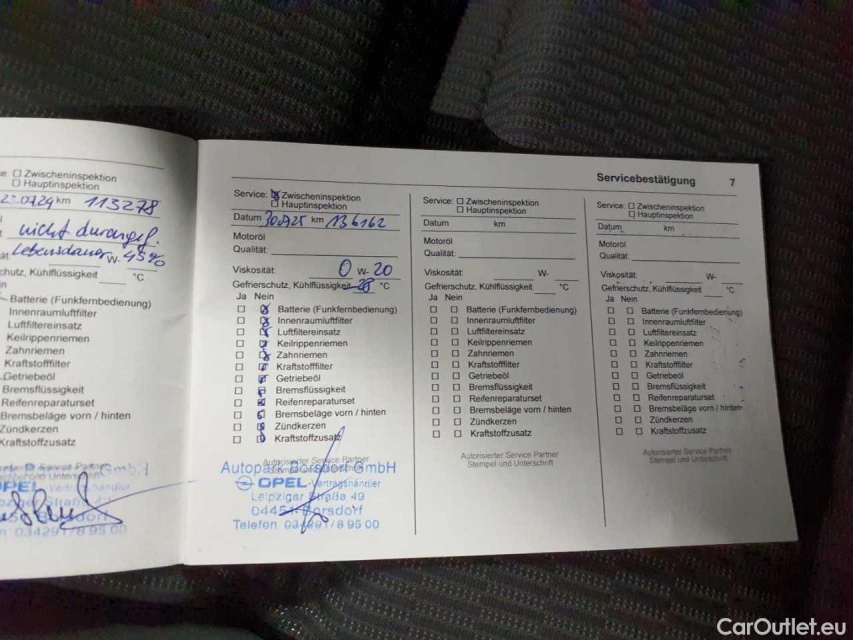 Servicebestätigung 7
☐ Zwischeninspektion
☐ Hauptinspektion
km 113278
nicht durchgef.
Lebensdauer W- 45%
chutz, Kühlflüssigkeit °C
Batterie (Funkfernbedienung)
Innenraumluftfilter
Luftfiltereinsatz
Keilrippenriemen
Zahnriemen
Kraftstofffilter
Getriebeöl
Bremsflüssigkeit
Reifenreparaturset
Bremsbeläge vorn / hinten
Zündkerzen
Kraftstoffzusatz
GmbH
OPEL
dorf
034291/8 95 00
Service: ☒ Zwischeninspektion
☐ Hauptinspektion
Datum km 136162
Motoröl
Qualität:
Viskosität: 0 W- 20
Gefrierschutz, Kühlflüssigkeit -28 °C
Ja Nein
☐ ☒ Batterie (Funkfernbedienung)
☐ ☒ Innenraumluftfilter
☐ ☒ Luftfiltereinsatz
☐ ☒ Keilrippenriemen
☐ ☒ Zahnriemen
☐ ☒ Kraftstofffilter
☐ ☒ Getriebeöl
☐ ☒ Bremsflüssigkeit
☐ ☒ Reifenreparaturset
☐ ☒ Bremsbeläge vorn / hinten
☐ ☒ Zündkerzen
☐ ☒ Kraftstoffzusatz
Autorisierter Service Partner
Autopark Borsdorf GmbH
OPEL-Vertragshändler
Leipziger Straße 49
04451 Borsdorf
Telefon 034291/8 95 00
Service: ☐ Zwischeninspektion
☐ Hauptinspektion
Datum km
Motoröl
Qualität:
Viskosität: W-
Gefrierschutz, Kühlflüssigkeit °C
Ja Nein
☐ ☐ Batterie (Funkfernbedienung)
☐ ☐ Innenraumluftfilter
☐ ☐ Luftfiltereinsatz
☐ ☐ Keilrippenriemen
☐ ☐ Zahnriemen
☐ ☐ Kraftstofffilter
☐ ☐ Getriebeöl
☐ ☐ Bremsflüssigkeit
☐ ☐ Reifenreparaturset
☐ ☐ Bremsbeläge vorn / hinten
☐ ☐ Zündkerzen
☐ ☐ Kraftstoffzusatz
Autorisierter Service Partner
Stempel und Unterschrift
Service: ☐ Zwischeninspektion
☐ Hauptinspektion
Datum km
Motoröl
Qualität:
Viskosität: W-
Gefrierschutz, Kühlflüssigkeit °C
Ja Nein
☐ ☐ Batterie (Funkfernbedienung)
☐ ☐ Innenraumluftfilter
☐ ☐ Luftfiltereinsatz
☐ ☐ Keilrippenriemen
☐ ☐ Zahnriemen
☐ ☐ Kraftstofffilter
☐ ☐ Getriebeöl
☐ ☐ Bremsflüssigkeit
☐ ☐ Reifenreparaturset
☐ ☐ Bremsbeläge vorn / hinten
☐ ☐ Zündkerzen
☐ ☐ Kraftstoffzusatz
Autorisierter Service Partner
Stempel und Unterschrift
CarOutlet.eu